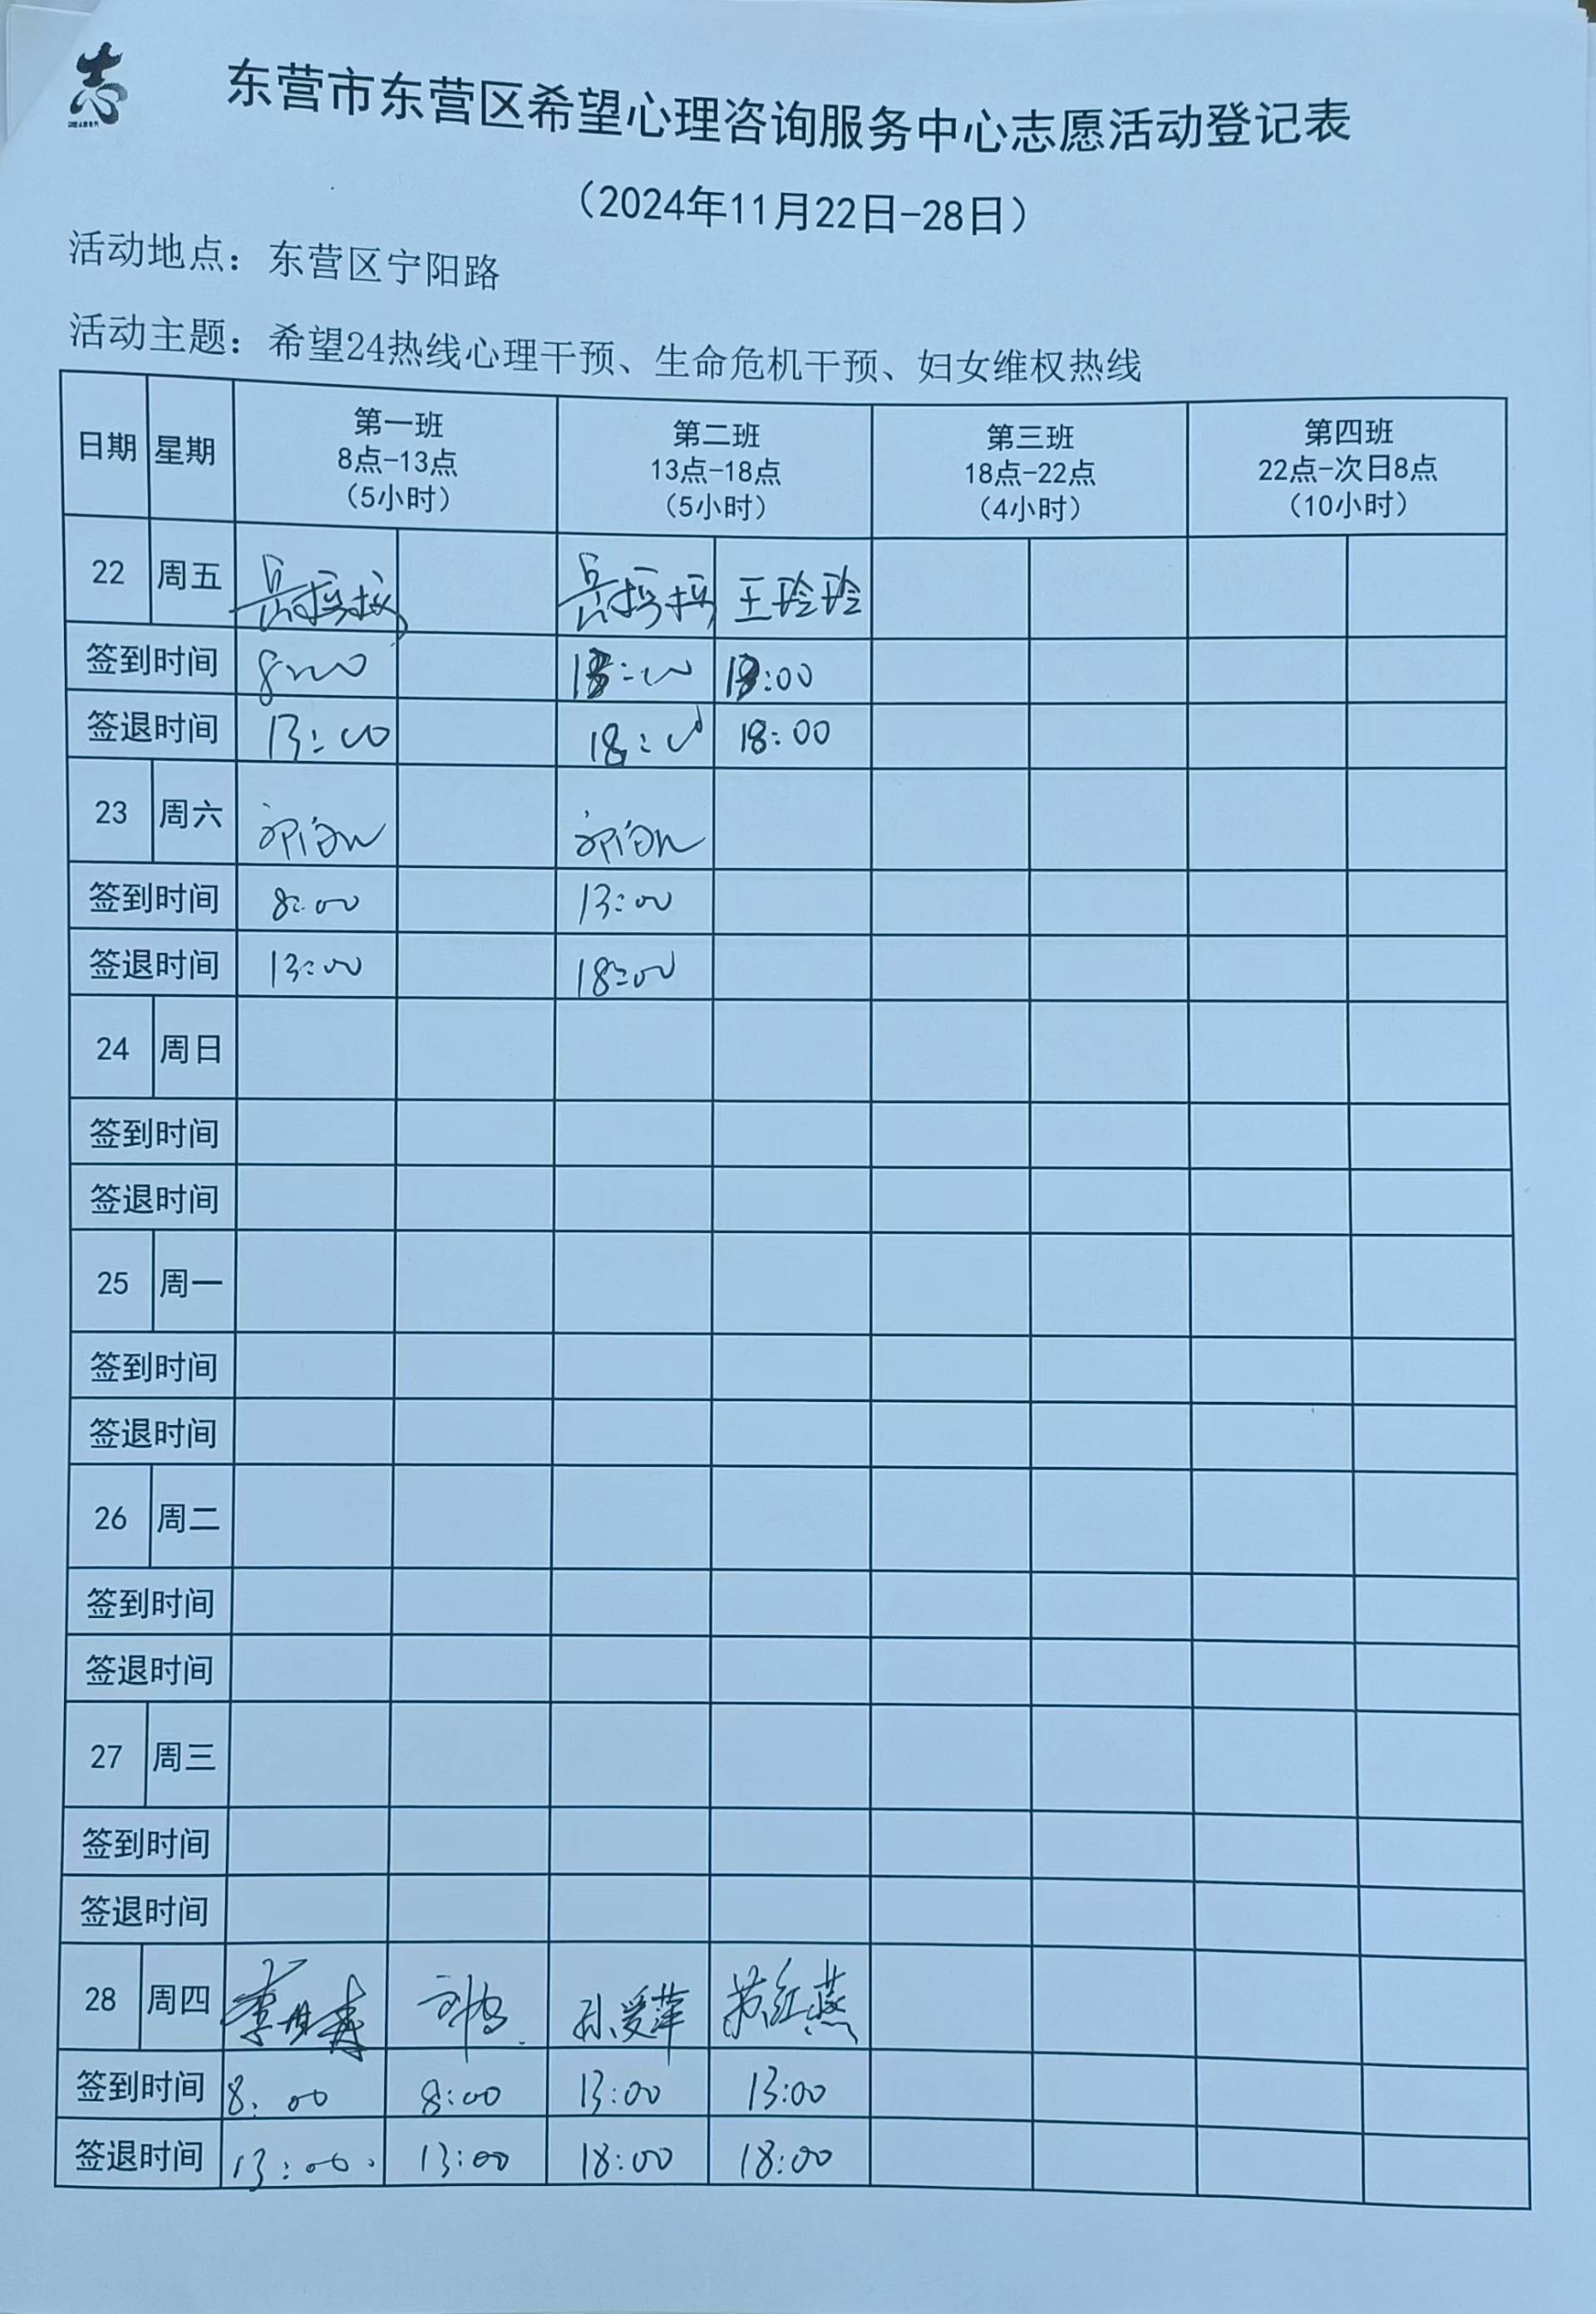 志
东营市东营区希望心理咨询服务中心志愿活动登记表
（2024年11月22日-28日）
活动地点：东营区宁阳路
活动主题：希望24热线心理干预、生命危机干预、妇女维权热线
日期 星期 第一班 8点-13点 （5小时） 第二班 13点-18点 （5小时） 第三班 18点-22点 （4小时） 第四班 22点-次日8点 （10小时）
22 周五 王玲玲
签到时间 8:00 13:00 13:00
签退时间 13:00 18:00 18:00
23 周六
签到时间 8:00 13:00
签退时间 13:00 18:00
24 周日
签到时间
签退时间
25 周一
签到时间
签退时间
26 周二
签到时间
签退时间
27 周三
签到时间
签退时间
28 周四 孙爱萍 苏红燕
签到时间 8:00 8:00 13:00 13:00
签退时间 13:00 13:00 18:00 18:00